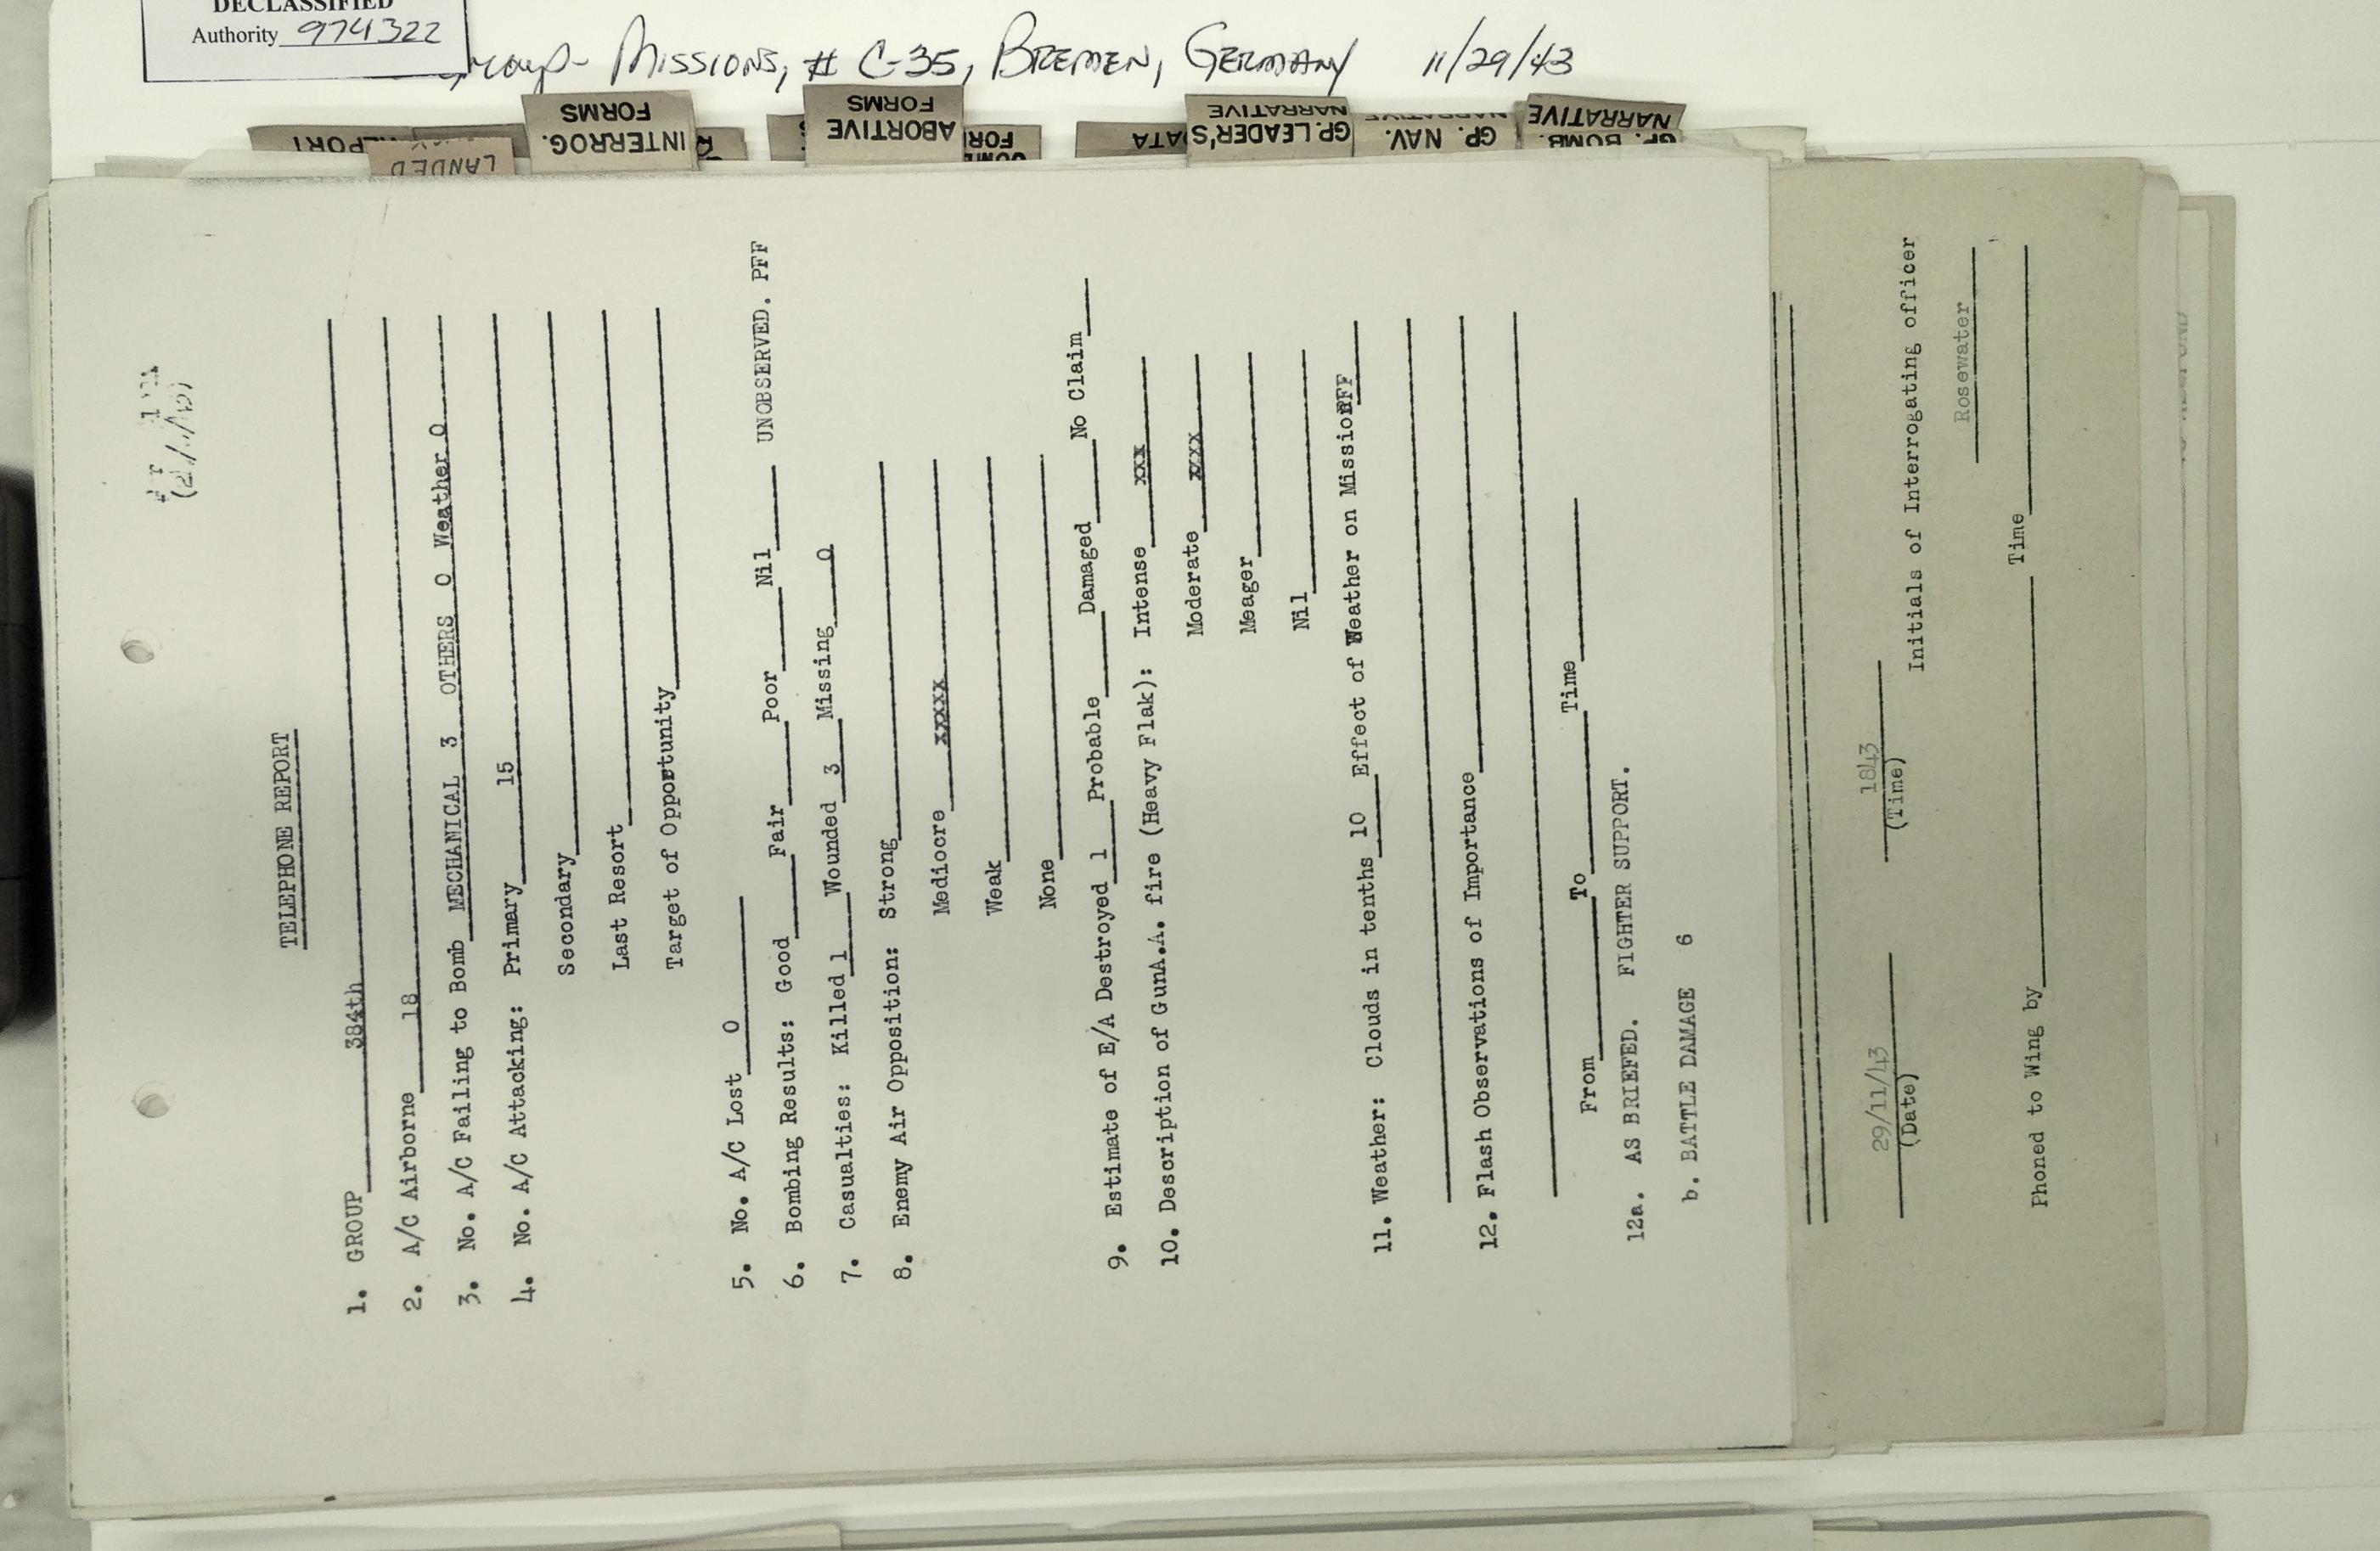 DECLASSIFIED
Authority 974322
Group- Missions, # C-35, BREMEN, GERMANY 11/29/43
LANDED
INTERROG.
FORMS
ABORTIVE
FORMS
GP.LEADER'S
NARRATIVE
DATA
GP. NAV.
NARRATIVE
GP. BOMB.
NARRATIVE
TELEPHONE REPORT
1. GROUP 384th
2. A/C Airborne 18
3. No. A/C Failing to Bomb MECHANICAL 3 OTHERS 0 Weather 0
4. No. A/C Attacking: Primary 15
Secondary
Last Resort
Target of Opportunity
5. No. A/C Lost 0
6. Bombing Results: Good Fair Poor Nil UNOBSERVED. PFF
7. Casualties: Killed 1 Wounded 3 Missing 0
8. Enemy Air Opposition: Strong
Mediocre xxxx
Weak
None
9. Estimate of E/A Destroyed 1 Probable Damaged No Claim
10. Description of GunA.A. fire (Heavy Flak): Intense xxx
Moderate xxxx
Meager
Nil
11. Weather: Clouds in tenths 10 Effect of Weather on Mission PFF
12. Flash Observations of Importance
From To Time
12a. AS BRIEFED. FIGHTER SUPPORT.
b. BATTLE DAMAGE 6
29/11/43 1843
(Date) (Time) Initials of Interrogating officer
Rosewater
Phoned to Wing by Time